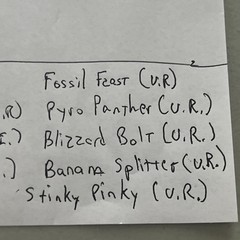 Fossil Feast (U.R)
.R) Pyro Panther (U.R.)
E.) Blizzard Bolt (U.R.)
.) Banana Splitter (U.R.)
Stinky Pinky (U.R.)